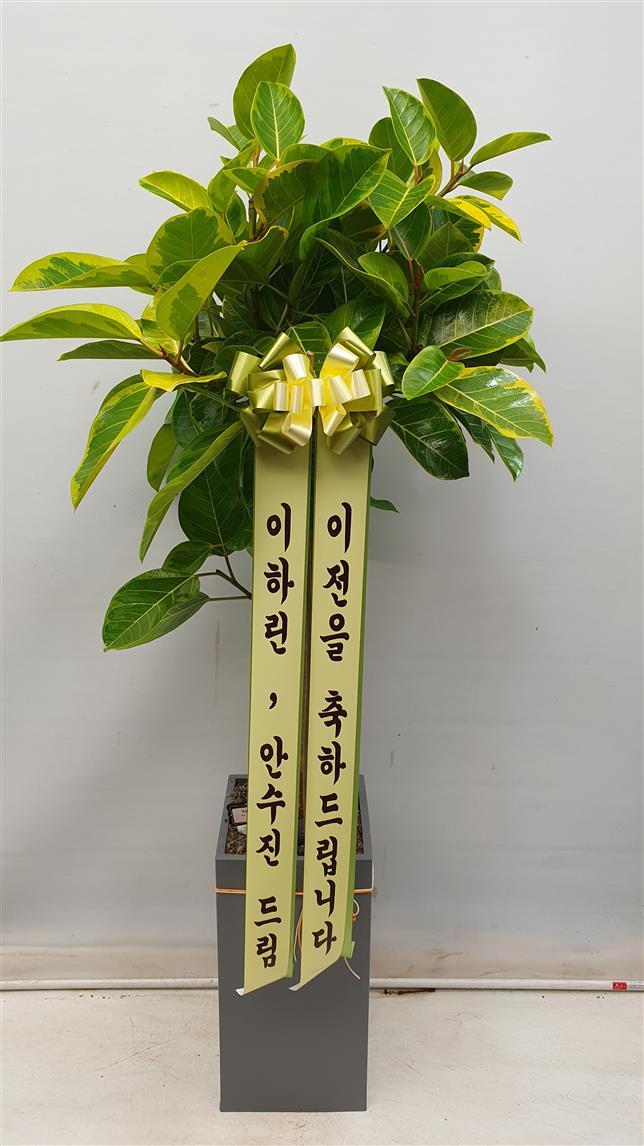 이전을 축하드립니다
이하린 , 안수진 드림